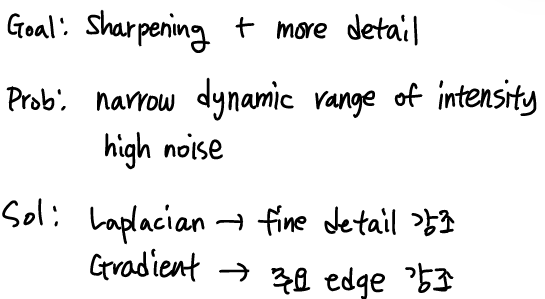 Goal: Sharpening + more detail
Prob: narrow dynamic range of intensity
high noise
Sol: Laplacian → fine detail 강조
Gradient → 주요 edge 강조